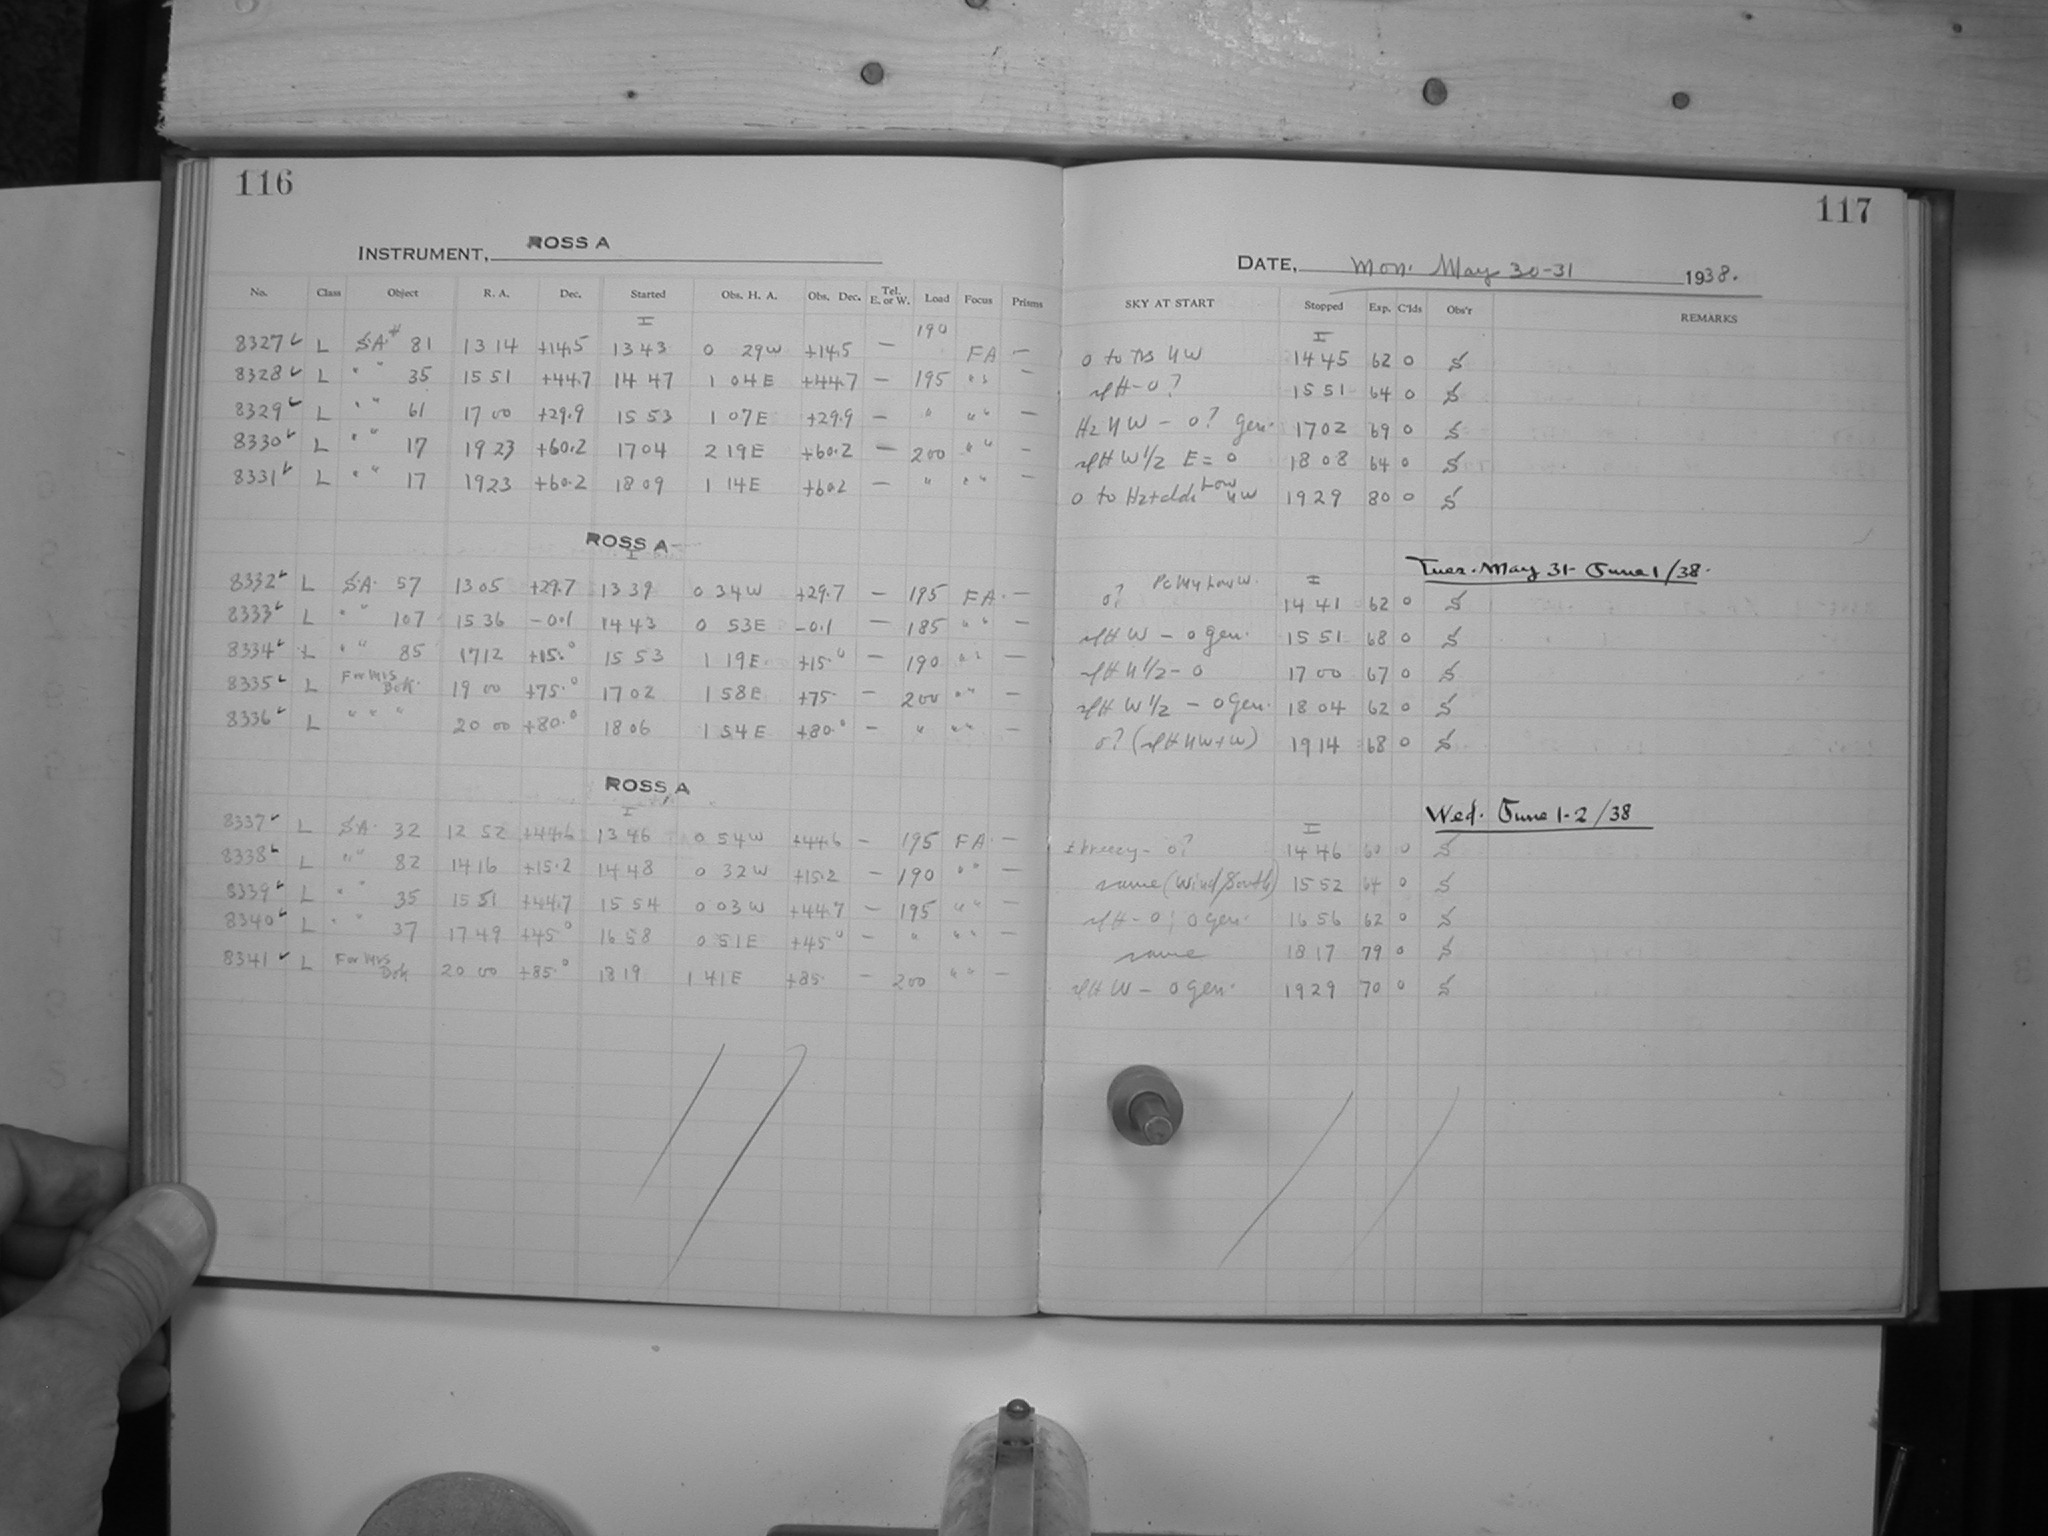 116
INSTRUMENT, ROSS A
No. Class Object R. A. Dec. Started Obs. H. A. Obs. Dec. Tel. E. or W. Load Focus Prisms
I
8327 L S.A.# 81 13 14 +14.5 13 43 0 29W +14.5 — 190 FA —
8328 L " " 35 15 51 +44.7 14 47 1 04E +44.7 — 195 " " —
8329 L " " 61 17 00 +29.9 15 53 1 07E +29.9 — " " " —
8330 L " " 17 19 23 +60.2 17 04 2 19E +60.2 — 200 " " —
8331 L " " 17 19 23 +60.2 18 09 1 14E +60.2 — " " " —
ROSS A
I
8332 L S.A. 57 13 05 +29.7 13 39 0 34W +29.7 — 195 FA. —
8333 L " " 107 15 36 -0.1 14 43 0 53E -0.1 — 185 " " —
8334 L " " 85 17 12 +15.° 15 53 1 19E +15° — 190 " " —
8335 L For Mrs Bok. 19 00 +75.° 17 02 1 58E +75. — 200 " " —
8336 L " " " 20 00 +80.° 18 06 1 54E +80.° — " " " —
ROSS A
I
8337 L S.A. 32 12 52 +44.6 13 46 0 54W +44.6 — 195 FA. —
8338 L " " 82 14 16 +15.2 14 48 0 32W +15.2 — 190 " " —
8339 L " " 35 15 51 +44.7 15 54 0 03W +44.7 — 195 " " —
8340 L " " 37 17 49 +45° 16 58 0 51E +45° — " " " —
8341 L For Mrs Bok 20 00 +85.° 18 19 1 41E +85. — 200 " " —
117
DATE, Mon. May 30-31 1938.
SKY AT START Stopped Exp. C'lds Obs'r REMARKS
I
0 to 14 45 62 0 S
0? 15 51 64 0 S
Hz - 0? gen. 17 02 69 0 S
W 1/2 E = 0 18 08 64 0 S
0 to Hz Low 19 29 80 0 S
Tues. May 31- June 1/38.
I
0? Low W. 14 41 62 0 S
W - 0 gen. 15 51 68 0 S
1/2 - 0 17 00 67 0 S
W 1/2 - 0 gen. 18 04 62 0 S
0? 19 14 68 0 S
Wed. June 1-2/38
I
breezy - 0? 14 46 60 0 S
same (wind South) 15 52 64 0 S
0; 0 gen. 16 56 62 0 S
same 18 17 79 0 S
W - 0 gen. 19 29 70 0 S